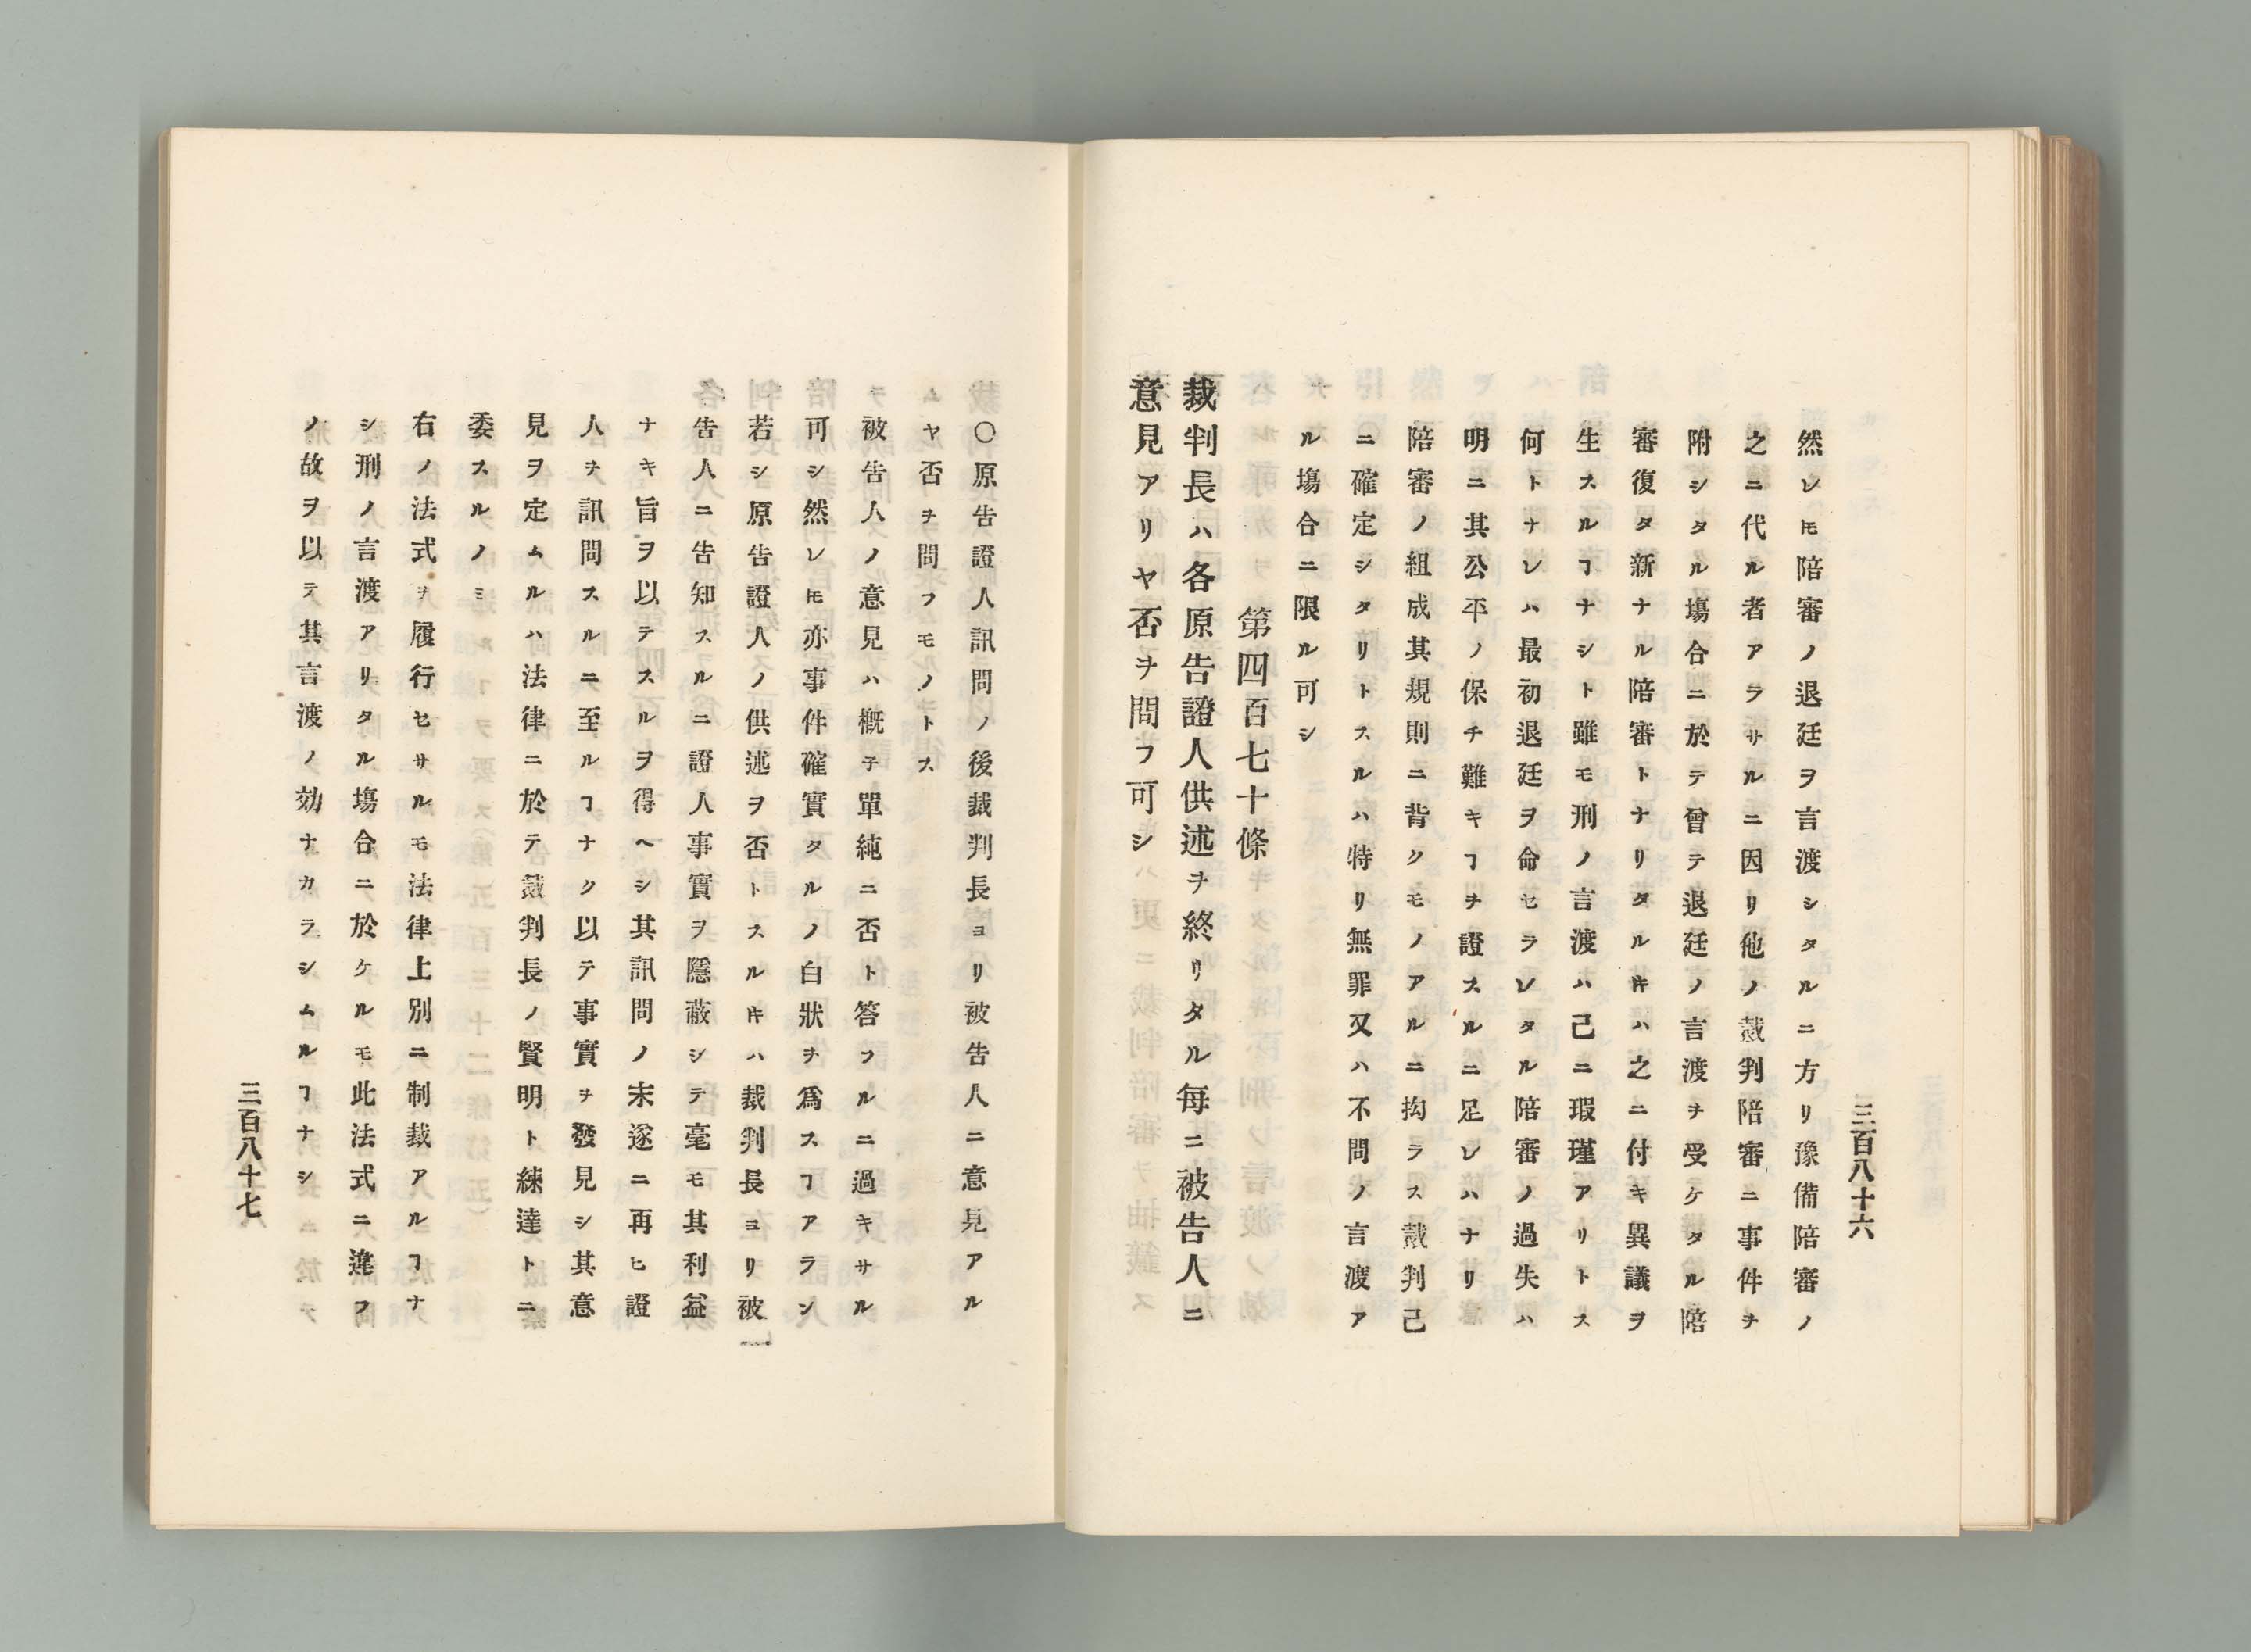 三百八十六
然レ𪜈陪審ノ退廷ヲ言渡シタルニ方リ豫備陪審ノ
之ニ代ル者アラサルニ因リ他ノ裁判陪審ニ事件ヲ
附シタル塲合ニ於テ曾テ退廷ノ言渡ヲ受ケタル陪
審復タ新ナル陪審トナリタル𪜈ハ之ニ付キ異議ヲ
生スルヿナシト雖モ刑ノ言渡ハ己ニ瑕瑾アリトス
何トナレハ最初退廷ヲ命セラレタル陪審ノ過失ハ
明ニ其公平ノ保チ難キヿヲ證スルニ足レハナリ
陪審ノ組成其規則ニ背クモノアルニ拘ラス裁判己
ニ確定シタリトスルハ特リ無罪又ハ不問ノ言渡ア
ル塲合ニ限ル可シ
第四百七十條
裁判長ハ各原告證人供述ヲ終リタル毎ニ被告人ニ
意見アリヤ否ヲ問フ可シ
〇原告證人訊問ノ後裁判長ヨリ被告人ニ意見アル
ヤ否ヲ問フモノトス
被告人ノ意見ハ概子單純ニ否ト答フルニ過キサル
可シ然レ𪜈亦事件確實タルノ白狀ヲ爲スヿアラン
若シ原告證人ノ供述ヲ否トスル𪜈ハ裁判長ヨリ被
告人ニ告知スルニ證人事實ヲ隱蔽シテ毫モ其利益
ナキ旨ヲ以テスルヲ得ヘシ其訊問ノ末遂ニ再ヒ證
人ヲ訊問スルニ至ルヿナク以テ事實ヲ發見シ其意
見ヲ定ムルハ法律ニ於テ裁判長ノ賢明ト練達トニ
委スルノミ
右ノ法式ヲ履行セサルモ法律上別ニ制裁アルヿナ
シ刑ノ言渡アリタル塲合ニ於ケルモ此法式ニ違フ
ノ故ヲ以テ其言渡ノ効ナカラシムルヿナシ
三百八十七